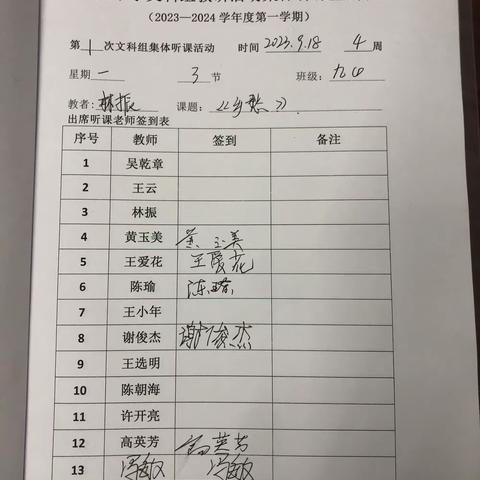 （2023—2024学年度第一学期）
第 1 次文科组集体听课活动 时间 2023.9.18 4 周
星期 一 3 节 班级：九(1)
教者：林振 课题：《乡愁》
出席听课老师签到表
序号 教师 签到 备注
1 吴乾章
2 王云
3 林振
4 黄玉美 黄玉美
5 王爱花 王爱花
6 陈瑜 陈瑜
7 王小年
8 谢俊杰 谢俊杰
9 王选明
10 陈朝海
11 许开亮
12 高英芳 高英芳
13 冯敏 冯敏